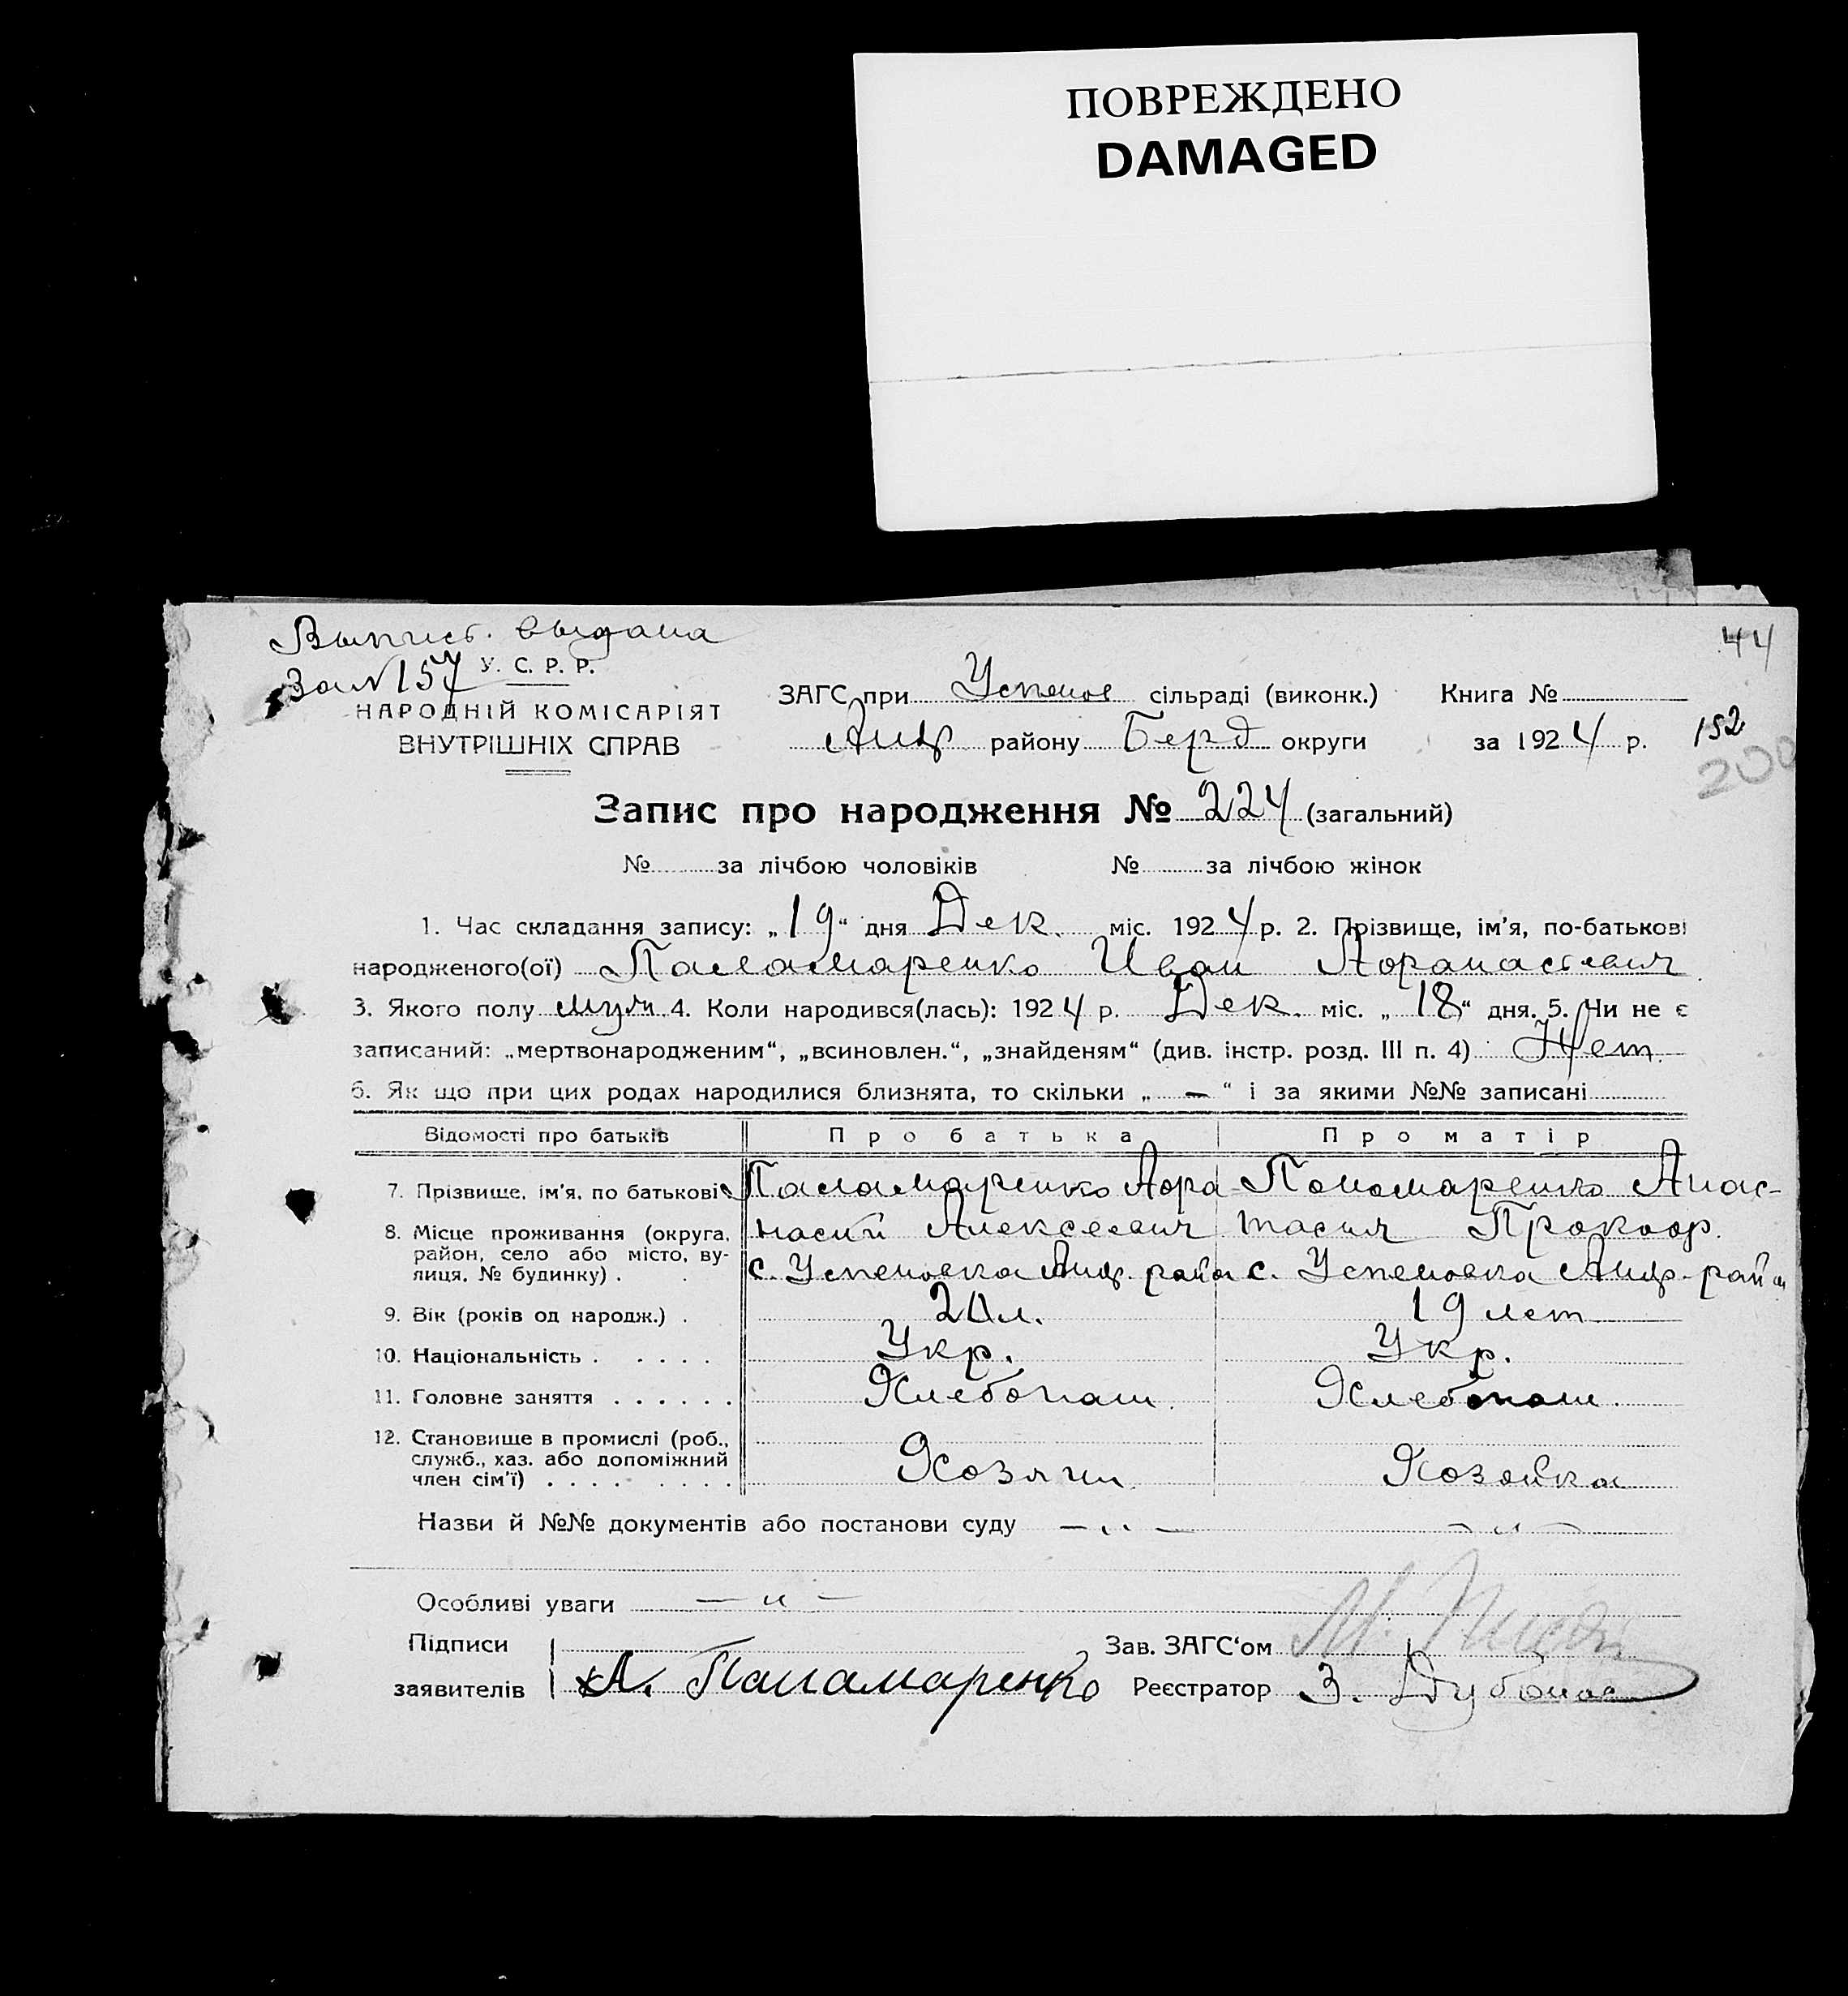 ПОВРЕЖДЕНО
DAMAGED
Выпись. выдана
44
За №157
У. С. Р. Р.
НАРОДНІЙ КОМІСАРІЯТ
ВНУТРІШНІХ СПРАВ
ЗАГС при Успенов сільраді (виконк.) Книга №
району Берд округи за 1924 р.
152
200
Запис про народження № 224 (загальний)
№ за лічбою чоловіків № за лічбою жінок
1. Час складання запису: „19“ дня Дек. міс. 1924 р. 2. Прізвище, ім'я, по-батькові
народженого(ої) Паламаренко Иван Афанасьевич
3. Якого полу муж. 4. Коли народився(лась): 1924 р. Дек. міс. „18“ дня. 5. Чи не є
записаний: „мертвонародженим“, „всиновлен.“, „знайденям“ (див. інстр. розд. III п. 4) Нет.
6. Як що при цих родах народилися близнята, то скільки „ — “ і за якими №№ записані
Відомості про батьків Про батька Про матір
7. Прізвище, ім'я, по батькові Паламаренко Афа Пономаренко Анас-
8. Місце проживання (округа, район, село або місто, вулиця, № будинку) . насий Алексеевич тасия Прокоф.
с. Успеновка район с. Успеновка район
9. Вік (років од народж.) . 20 л. 19 лет
10. Національність . . . . . Укр. Укр.
11. Головне заняття . . . . . . Хлебопаш. Хлебопаш.
12. Становище в промислі (роб., служб., хаз. або допоміжний член сім'ї) . . . . . . . . Хозяин Хозяйка
Назви й №№ документів або постанови суду — „ — — „ —
Особливі уваги — „ —
Підписи Зав. ЗАГС'ом М.
заявителів А. Панамаренко Реєстратор З.